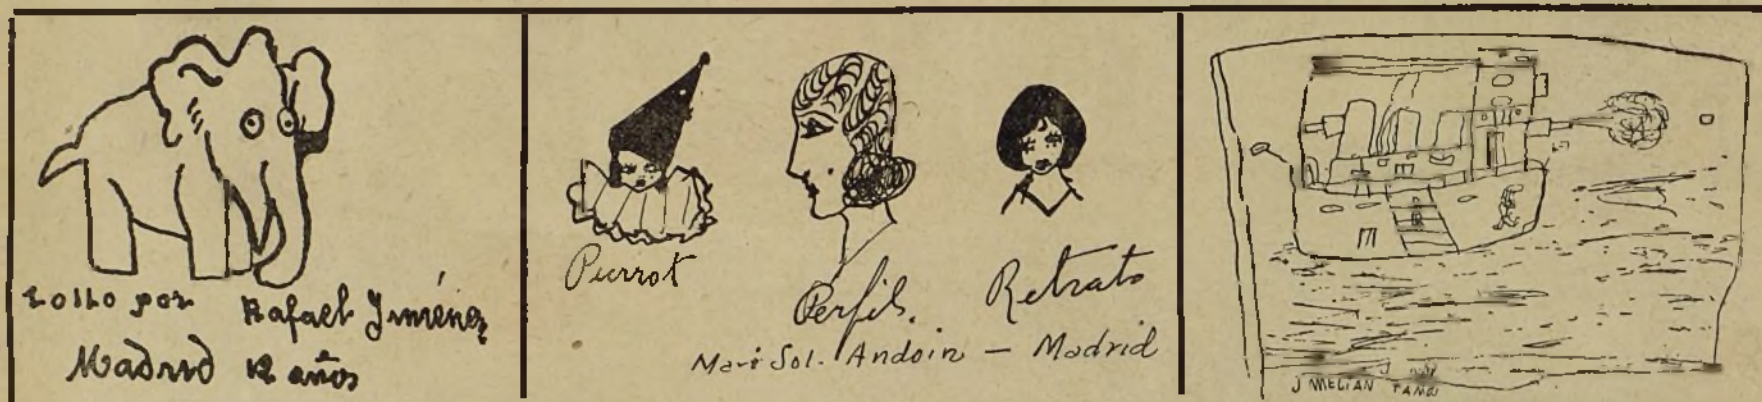 por Rafael Jiménez
Madrid 12 años
Pierrot
Perfil.
Retrato
Mari Sol. Andoin — Madrid
J MELIAN